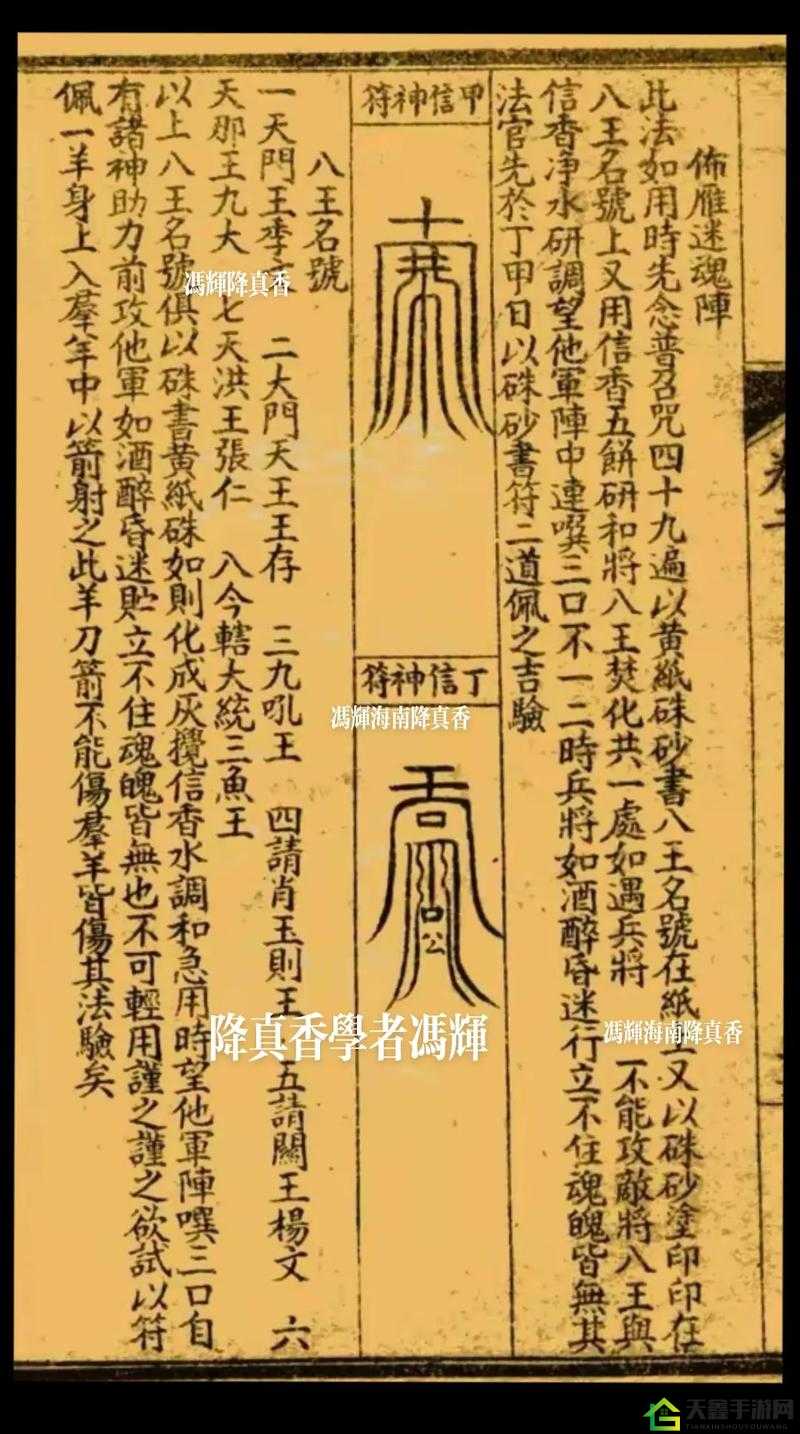 佈雁迷魂陣
此法如用時先念普召咒四十九遍以黃紙硃砂書八王名號在紙上又以硃砂塗印印在
八王名號上又用信香五餅研和將八王焚化共一處如遇兵將 不能攻敵將八王與
信香凈水研調望他軍陣中連噀三口不一二時兵將如酒醉昏迷行立不住魂魄皆無其
法官先於丁甲日以硃砂書符二道佩之吉驗
甲信神符
丁信神符
八王名號
一天門王李 二大門天王王存 三九吼王 四請肖玉則王 五請關王楊文 六
天那王九大 七天洪王張仁 八今轄大統三魚王
以上八王名號俱以硃書黃紙硃如則化成灰攪信香水調和急用時望他軍陣噀三口自
有諸神助力前攻他軍如酒醉昏迷貯立不住魂魄皆無也不可輕用謹之謹之欲試以符
佩一羊身上入羣羊中以箭射之此羊刀箭不能傷羣羊皆傷其法驗矣
卷二
馮輝降真香
馮輝海南降真香
馮輝海南降真香
降真香學者馮輝
天鑫手游网
TIANXINSHOUYOUWANG